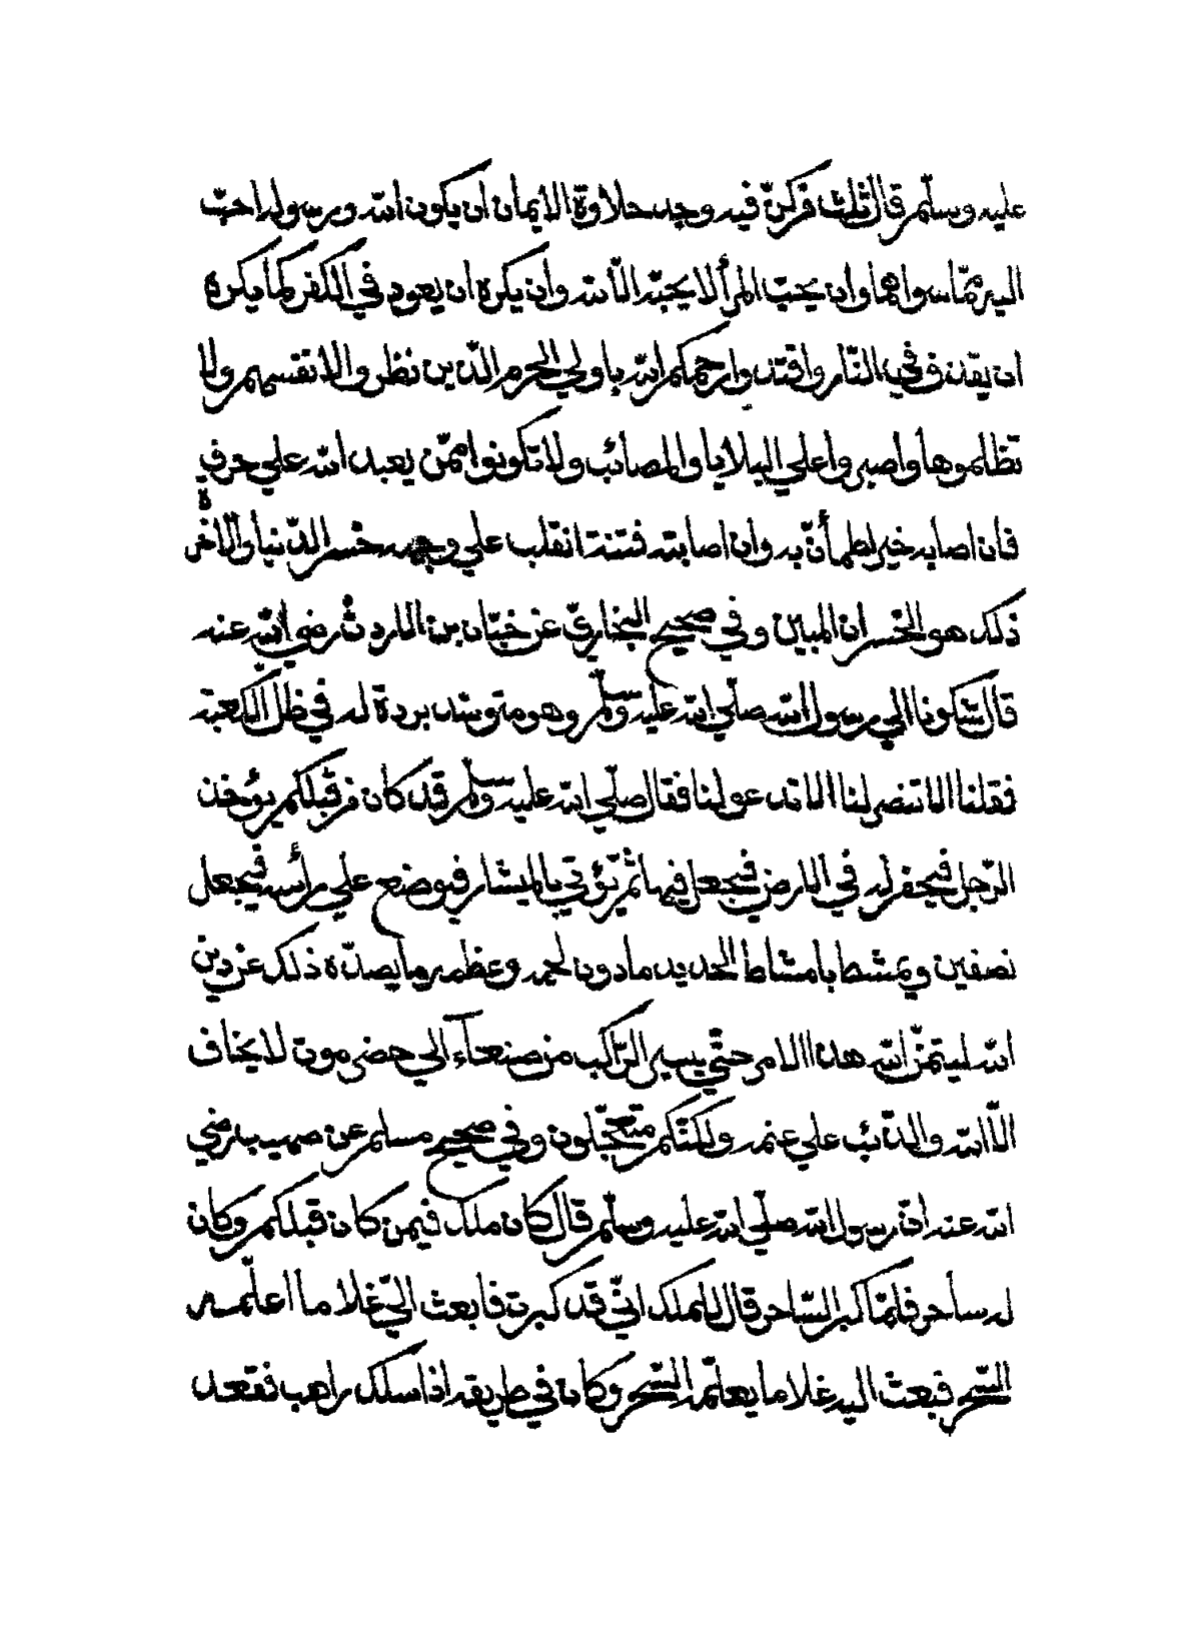 عليه وسلّم قال ثلث من كنّ فيه وجد حلاوة الايمان ان يكون الله ورسوله احبّ
اليه ممّا سواهما وان يحبّ المرأ لا يحبّه الّا لله وان يكره ان يعود في الكفر كما يكره
ان يقذف في النّار واقتد وارحمكم الله باولي الحرم الّذين نظروا لانفسهم ولا
تظلموها واصبروا علي البلايا والمصائب ولا تكونوا ممّن يعبد الله علي حرف
فان اصابه خير اطمأنّ به وان اصابته فتنة انقلب علي وجهه خسر الدّنيا والاخرة
ذلك هو الخسران المبين وفي صحيح البخاريّ عن خبّاب بن الارت رضي الله عنه
قال شكونا الي رسول الله صلّي الله عليه وسلّم وهو متوسّد بردة له في ظلّ الكعبة
فقلنا الا تنصر لنا الا تدعو لنا فقال صلّي الله عليه وسلّم قد كان من قبلكم يؤخذ
الرّجل فيحفر له في الارض فيجعل فيها ثمّ يؤتي بالميشار فيوضع علي رأسه فيجعل
نصفين ويمشط بامشاط الحديد ما دون لحمه وعظمه ما يصدّه ذلك عن دين
الله ليتمنّ الله هذا الامر حتّي يسير الرّاكب من صنعآء الي حضرموت لا يخاف
الّا الله والذّئب علي غنمه ولكنّكم تستعجلون وفي صحيح مسلم عن صهيب رضي
الله عنه انّ رسول الله صلّي الله عليه وسلّم قال كان ملك فيمن كان قبلكم وكان
له ساحر فلمّا كبر السّاحر قال للملك انّي قد كبرت فابعث اليّ غلاما اعلّمه
السّحر فبعث اليه غلاما يعلّمه السّحر وكان في طريقه اذا سلك راهب فقعد